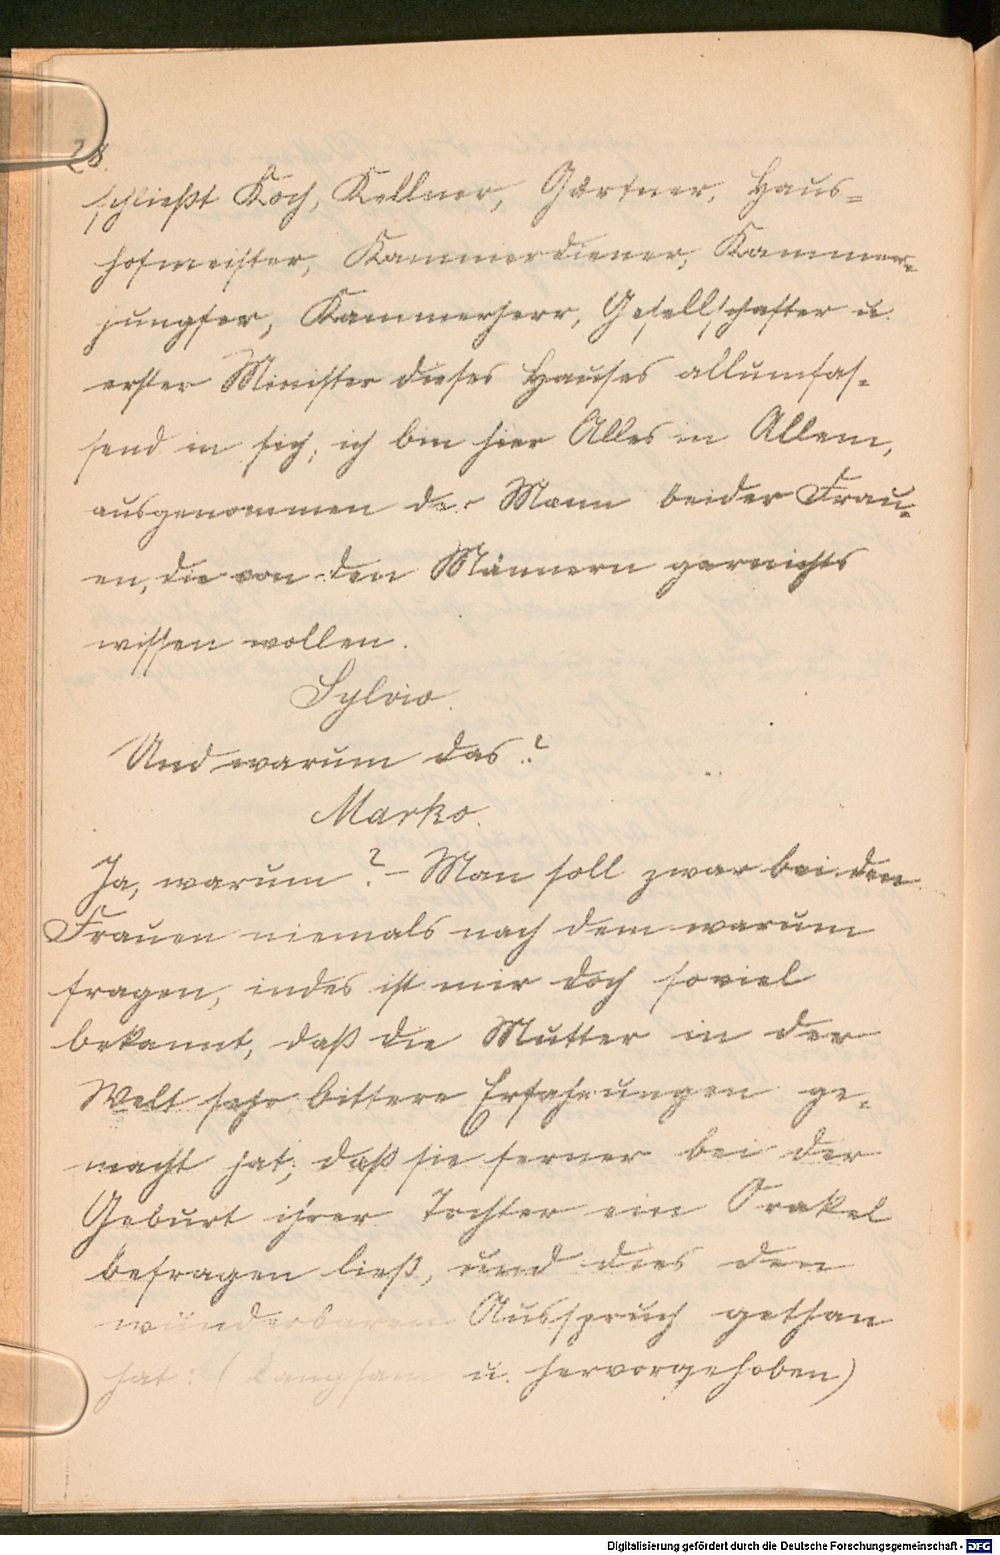 28.
schließt Koch, Kellner, Gärtner, Haus-
hofmeister, Kammerdiener, Kammer-
jungfer, Kammerherr, Gesellschafter u.
erster Minister dieses Hauses allumfas-
send in sich; ich bin hier Alles in Allem,
ausgenommen der Mann beider Frau-
en, die von den Männern garnichts
wissen wollen.
Sylvio.
Und warum das?
Marko.
Ja, warum? – Man soll zwar bei den
Frauen niemals nach dem warum
fragen, indes ist mir doch soviel
bekannt, daß die Mutter in der
Welt sehr bittere Erfahrungen ge-
macht hat; daß sie ferner bei der
Geburt ihrer Tochter ein Orakel
befragen ließ, und dies den
wunderbaren Ausspruch gethan
hat: (Langsam u. hervorgehoben)
Digitalisierung gefördert durch die Deutsche Forschungsgemeinschaft - DFG